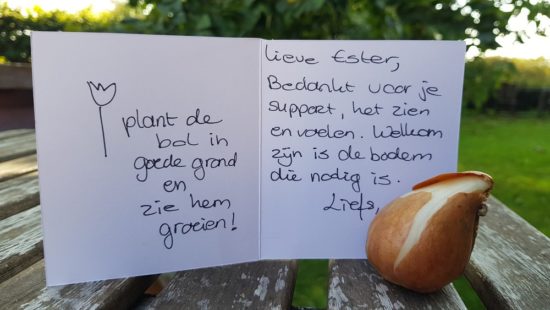 plant de
bol in
goede grond
en
zie hem
groeien!
Lieve Ester,
Bedankt voor je
support, het zien
en voelen. Welkom
zijn is de bodem
die nodig is.
Liefs,